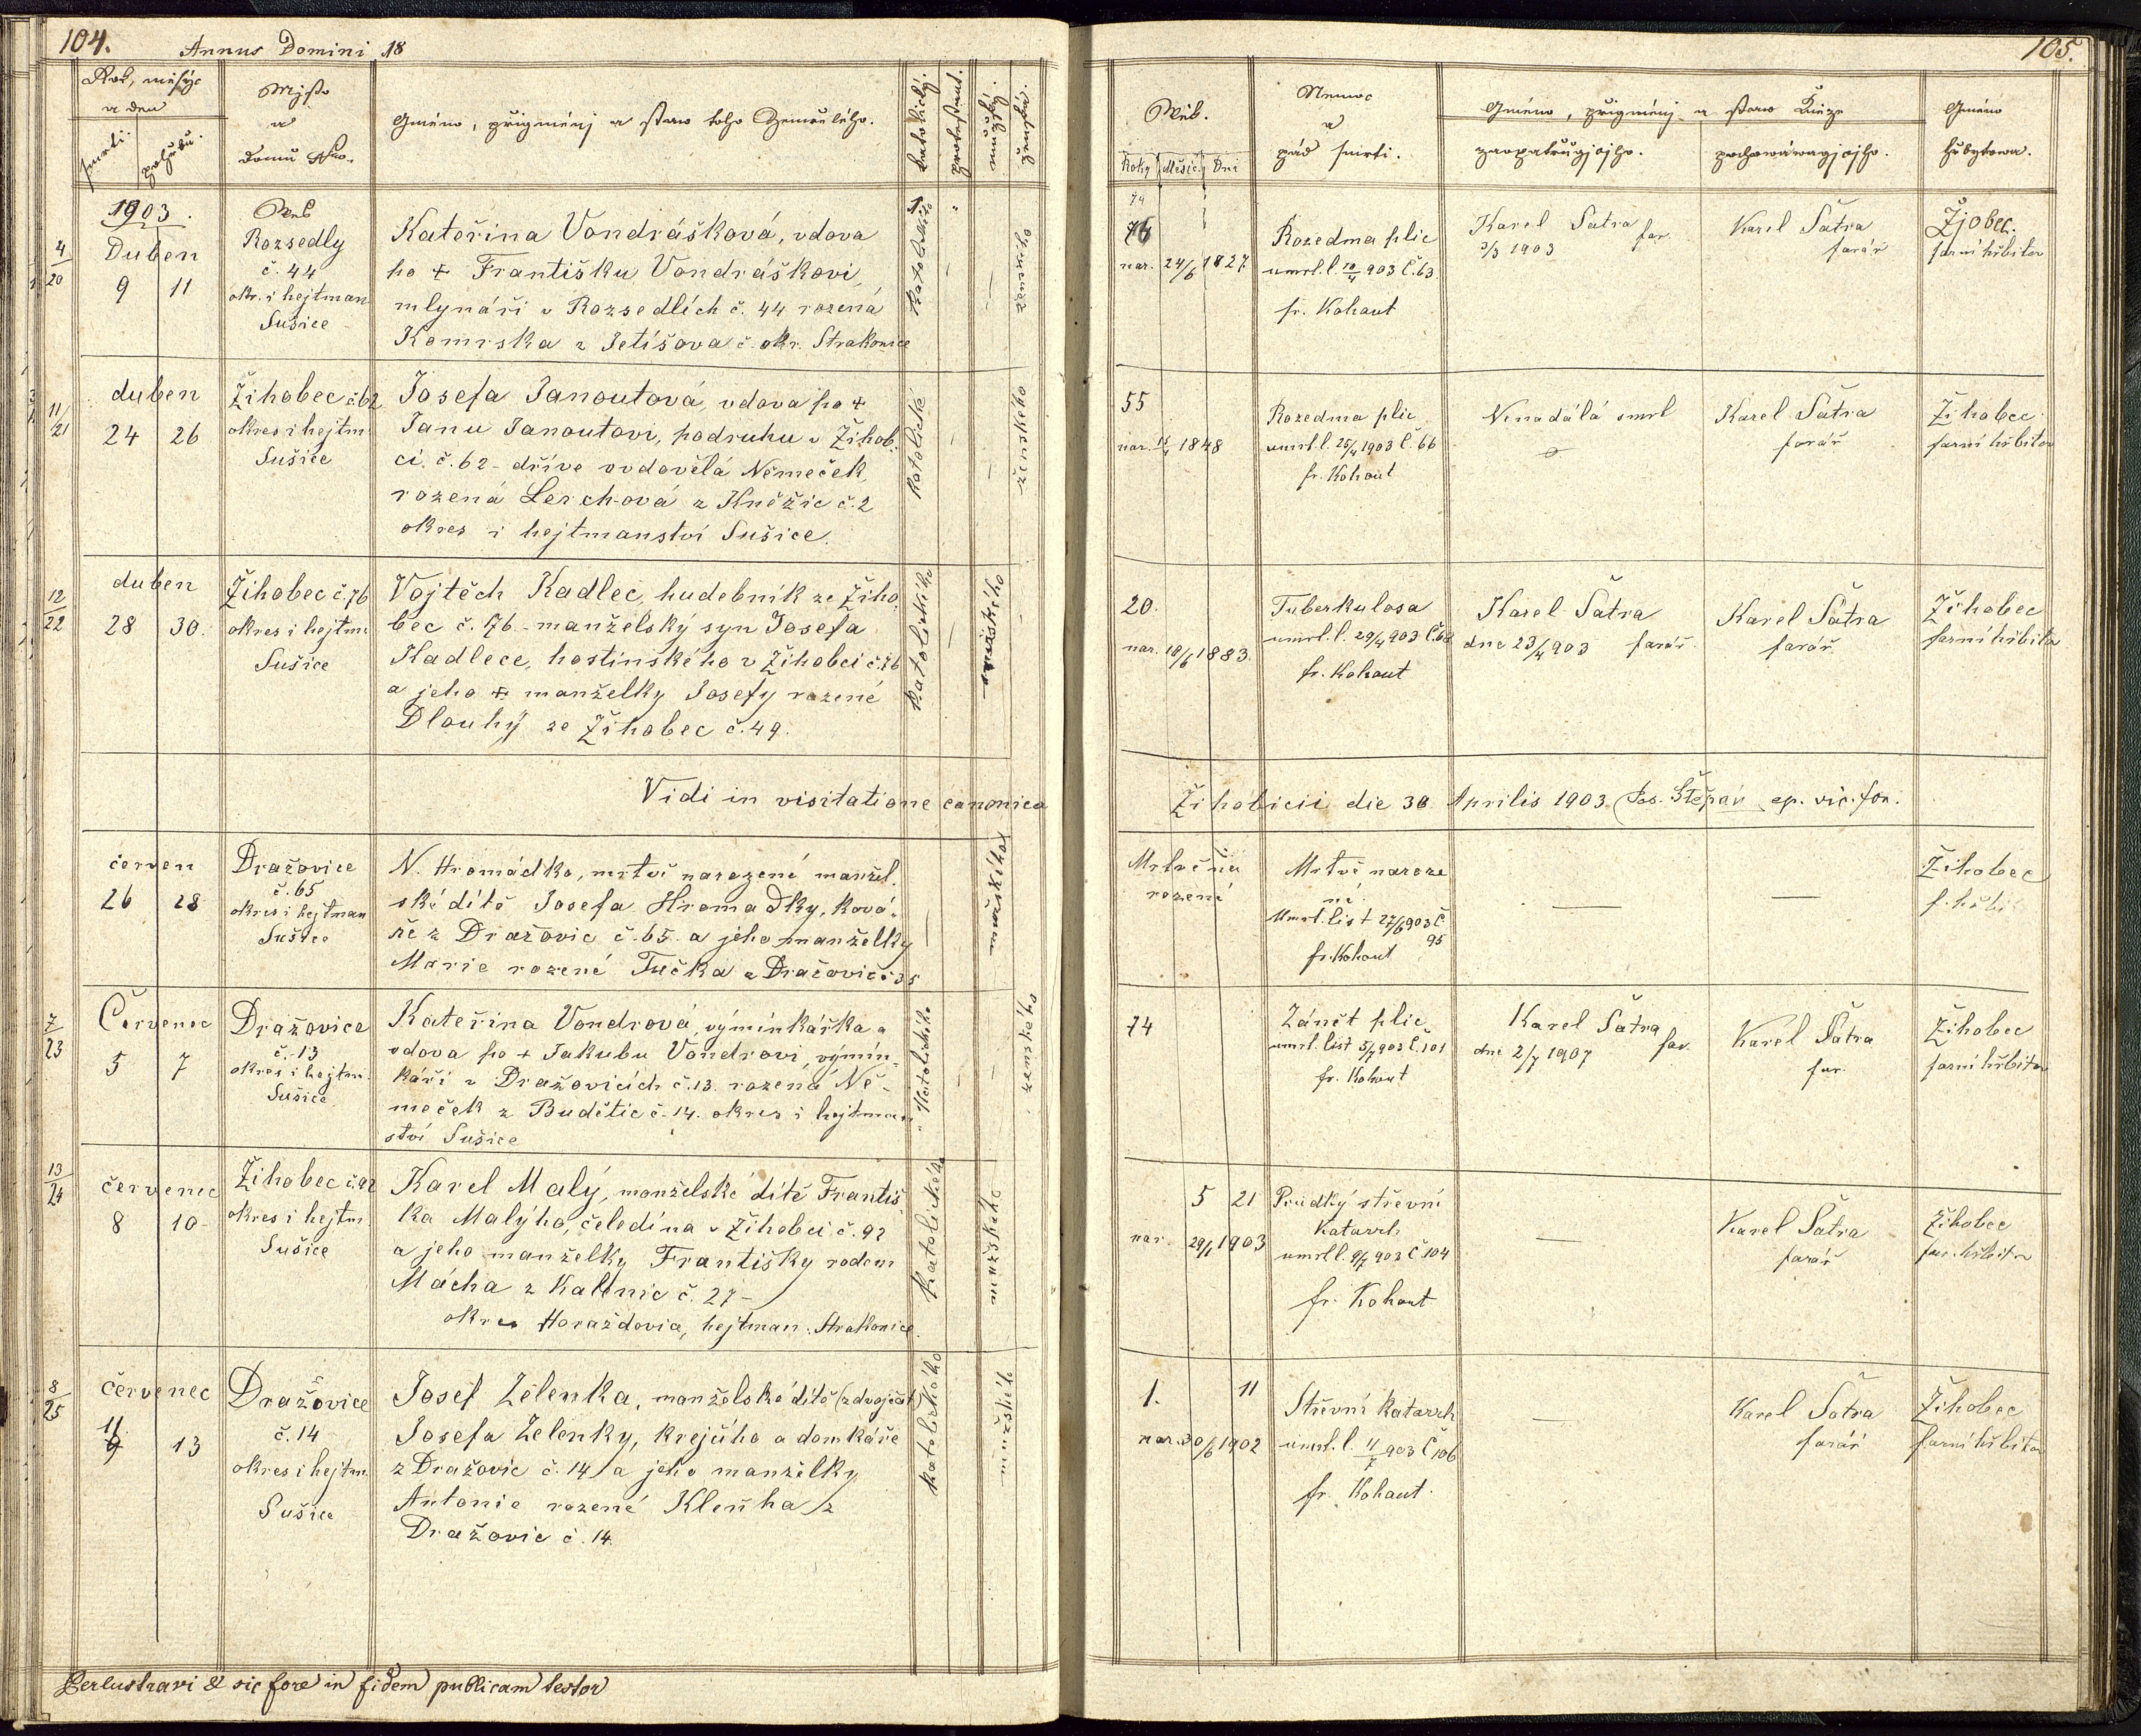 104.
Annus Domini 18
Rok, měsýc
a den
smrti.
pohřbu.
Mjsto
a
Domu Nro.
Gméno, přigménj a staw toho Zemřelého.
katolický.
protestant.
mužský.
ženská.
1903.
4/20
Duben
9 11
Ves
Rozsedly
č. 44
okr. i hejtman
Sušice
Kateřina Vondrášková, vdova
po + Františku Vondráškovi,
mlynáři v Rozsedlích č. 44 rozená
Komrska z Jetišova č. okr. Strakonice
katolického
ženského
11/21
duben
24 26
Žihobec č. 62
okres i hejtm.
Sušice
Josefa Janoutová, vdova po +
Janu Janoutovi, podruhu v Žihob
ci č. 62 - dříve ovdovělá Němeček,
rozená Lerchová z Kněžic č. 2
okres i hejtmanství Sušice.
katolické
ženského
12/22
duben
28 30.
Žihobec č. 76
okres i hejtm.
Sušice
Vojtěch Kadlec, hudebník ze Žiho
bec č. 76 - manželský syn Josefa
Kadlece, hostinského v Žihobci č. 76
a jeho + manželky Josefy rozené
Dlouhý ze Žihobec č. 49.
katolického
mužského
Vidi in visitatione canonica
červen
26 28
Dražovice
č. 65
okres i hejtman
Sušice
N. Hromádka, mrtvě narozené manžel.
ské dítě Josefa Hromadky, ková-
ře z Dražovic č. 65. a jeho manželky
Marie rozené Tučka z Dražovic č. 35
mužského
7/23
Červenec
5 7
Dražovice
č. 13
okres i hejtm.
Sušice
Kateřina Vondrová, výminkářka a
vdova po + Jakubu Vondrovi, výmin-
káři v Dražovicích č. 13. rozená Ně-
meček z Budětic č. 14. okres i hejtman
ství Sušice
Katolického
ženského
13/24
červenec
8 10
Žihobec č. 92
okres i hejtm.
Sušice
Karel Malý, manželské dítě Františ
ka Malýho, čeledína v Žihobci č. 92
a jeho manželky Františky rodem
Mácha z Kalenic č. 27 -
okres Horažďovice, hejtman. Strakonice.
Katolického
mužského
8/25
červenec
11 13
Dražovice
č. 14
okres i hejtm.
Sušice
Josef Zelenka, manželské dítě (z dvojčat)
Josefa Zelenky, krejčího a domkáře
z Dražovic č. 14 a jeho manželky
Antonie rozené Kleňha z
Dražovic č. 14.
katolického
mužské
Perlustravi & sic fore in fidem publicam testor
105.
Wěk.
Roky Měsíc. Dni
Nemoc
a
pád smrti.
Gméno, přigménj a staw Kněze
zaopatřugjcýho.
pochowáwagjcýho.
Gméno
hřbytowa.
74
76
nar. 24/6 1827
Rozedma plic
umrl. l. 10/4 903 č. 63
fr. Kohout
Karel Šatra far.
3/3 1903
Karel Šatra
farář
Žjobec.
farní hřbitov
55
nar. 15/4 1848
Rozedma plic
umrl. l. 25/4 1903 č. 66
fr. Kohout
Nenadálá smrt
Karel Šatra
farář
Žihobec
farní hřbitov
20.
nar. 18/6 1883.
Tuberkulosa
umrl. l. 29/4 903 č. 68
fr. Kohout
Karel Šatra
dne 23/4 903 farář.
Karel Šatra
farář.
Žihobec
farní hřbitov
Žihobicii die 30 Aprilis 1903. Jos. Štěpán ep. vic. for.
Mrtvě na
rozené
Mrtvě naroze
né.
Umrl. list 27/6 903 č.
95
fr. Kohout
Žihobec
f. hřbit
74
Zánět plic
umrl. list 5/7 903 č. 101
fr. Kohout
Karel Šatra
dne 2/7 1907 far.
Karel Šatra
far.
Žihobec
farní hřbitov
5 21
nar. 29/1 1903
Prudký střevní
Katarrh
umrl l. 9/7 903 č 104
fr. Kohout
Karel Šatra
farář
Žihobec
far. hřbitov
1. 11
nar. 30/6 1902
Střevní Katarrh
úmrl. l. 11/7 903 č 106
fr. Kohout.
Karel Šatra
farář
Žihobec
farní hřbitov